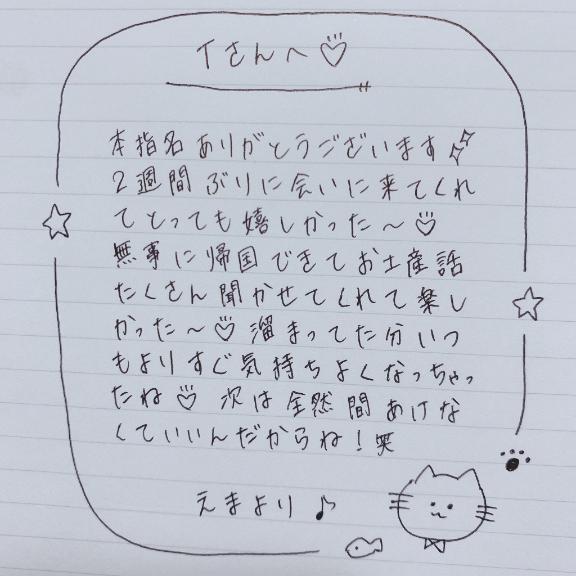 Tさんへ♡
本指名ありがとうございます✨
2週間ぶりに会いに来てくれ
てとっても嬉しかった〜♡
無事に帰国できてお土産話
たくさん聞かせてくれて楽し
かった〜♡溜まってた分いつ
もよりすぐ気持ちよくなっちゃっ
たね♡次は全然間あけな
くていいんだからね!笑
えまより♪